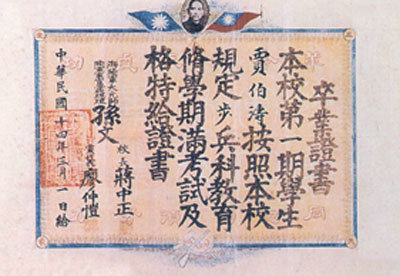 卒業證書
本校第一期學生
賈伯濤按照本校
規定步兵科教育
修學期滿考試及
格特給證書
海陸軍大元帥
孫文
校長 蔣中正
黨代表 廖仲愷
中華民國十四年三月一日給